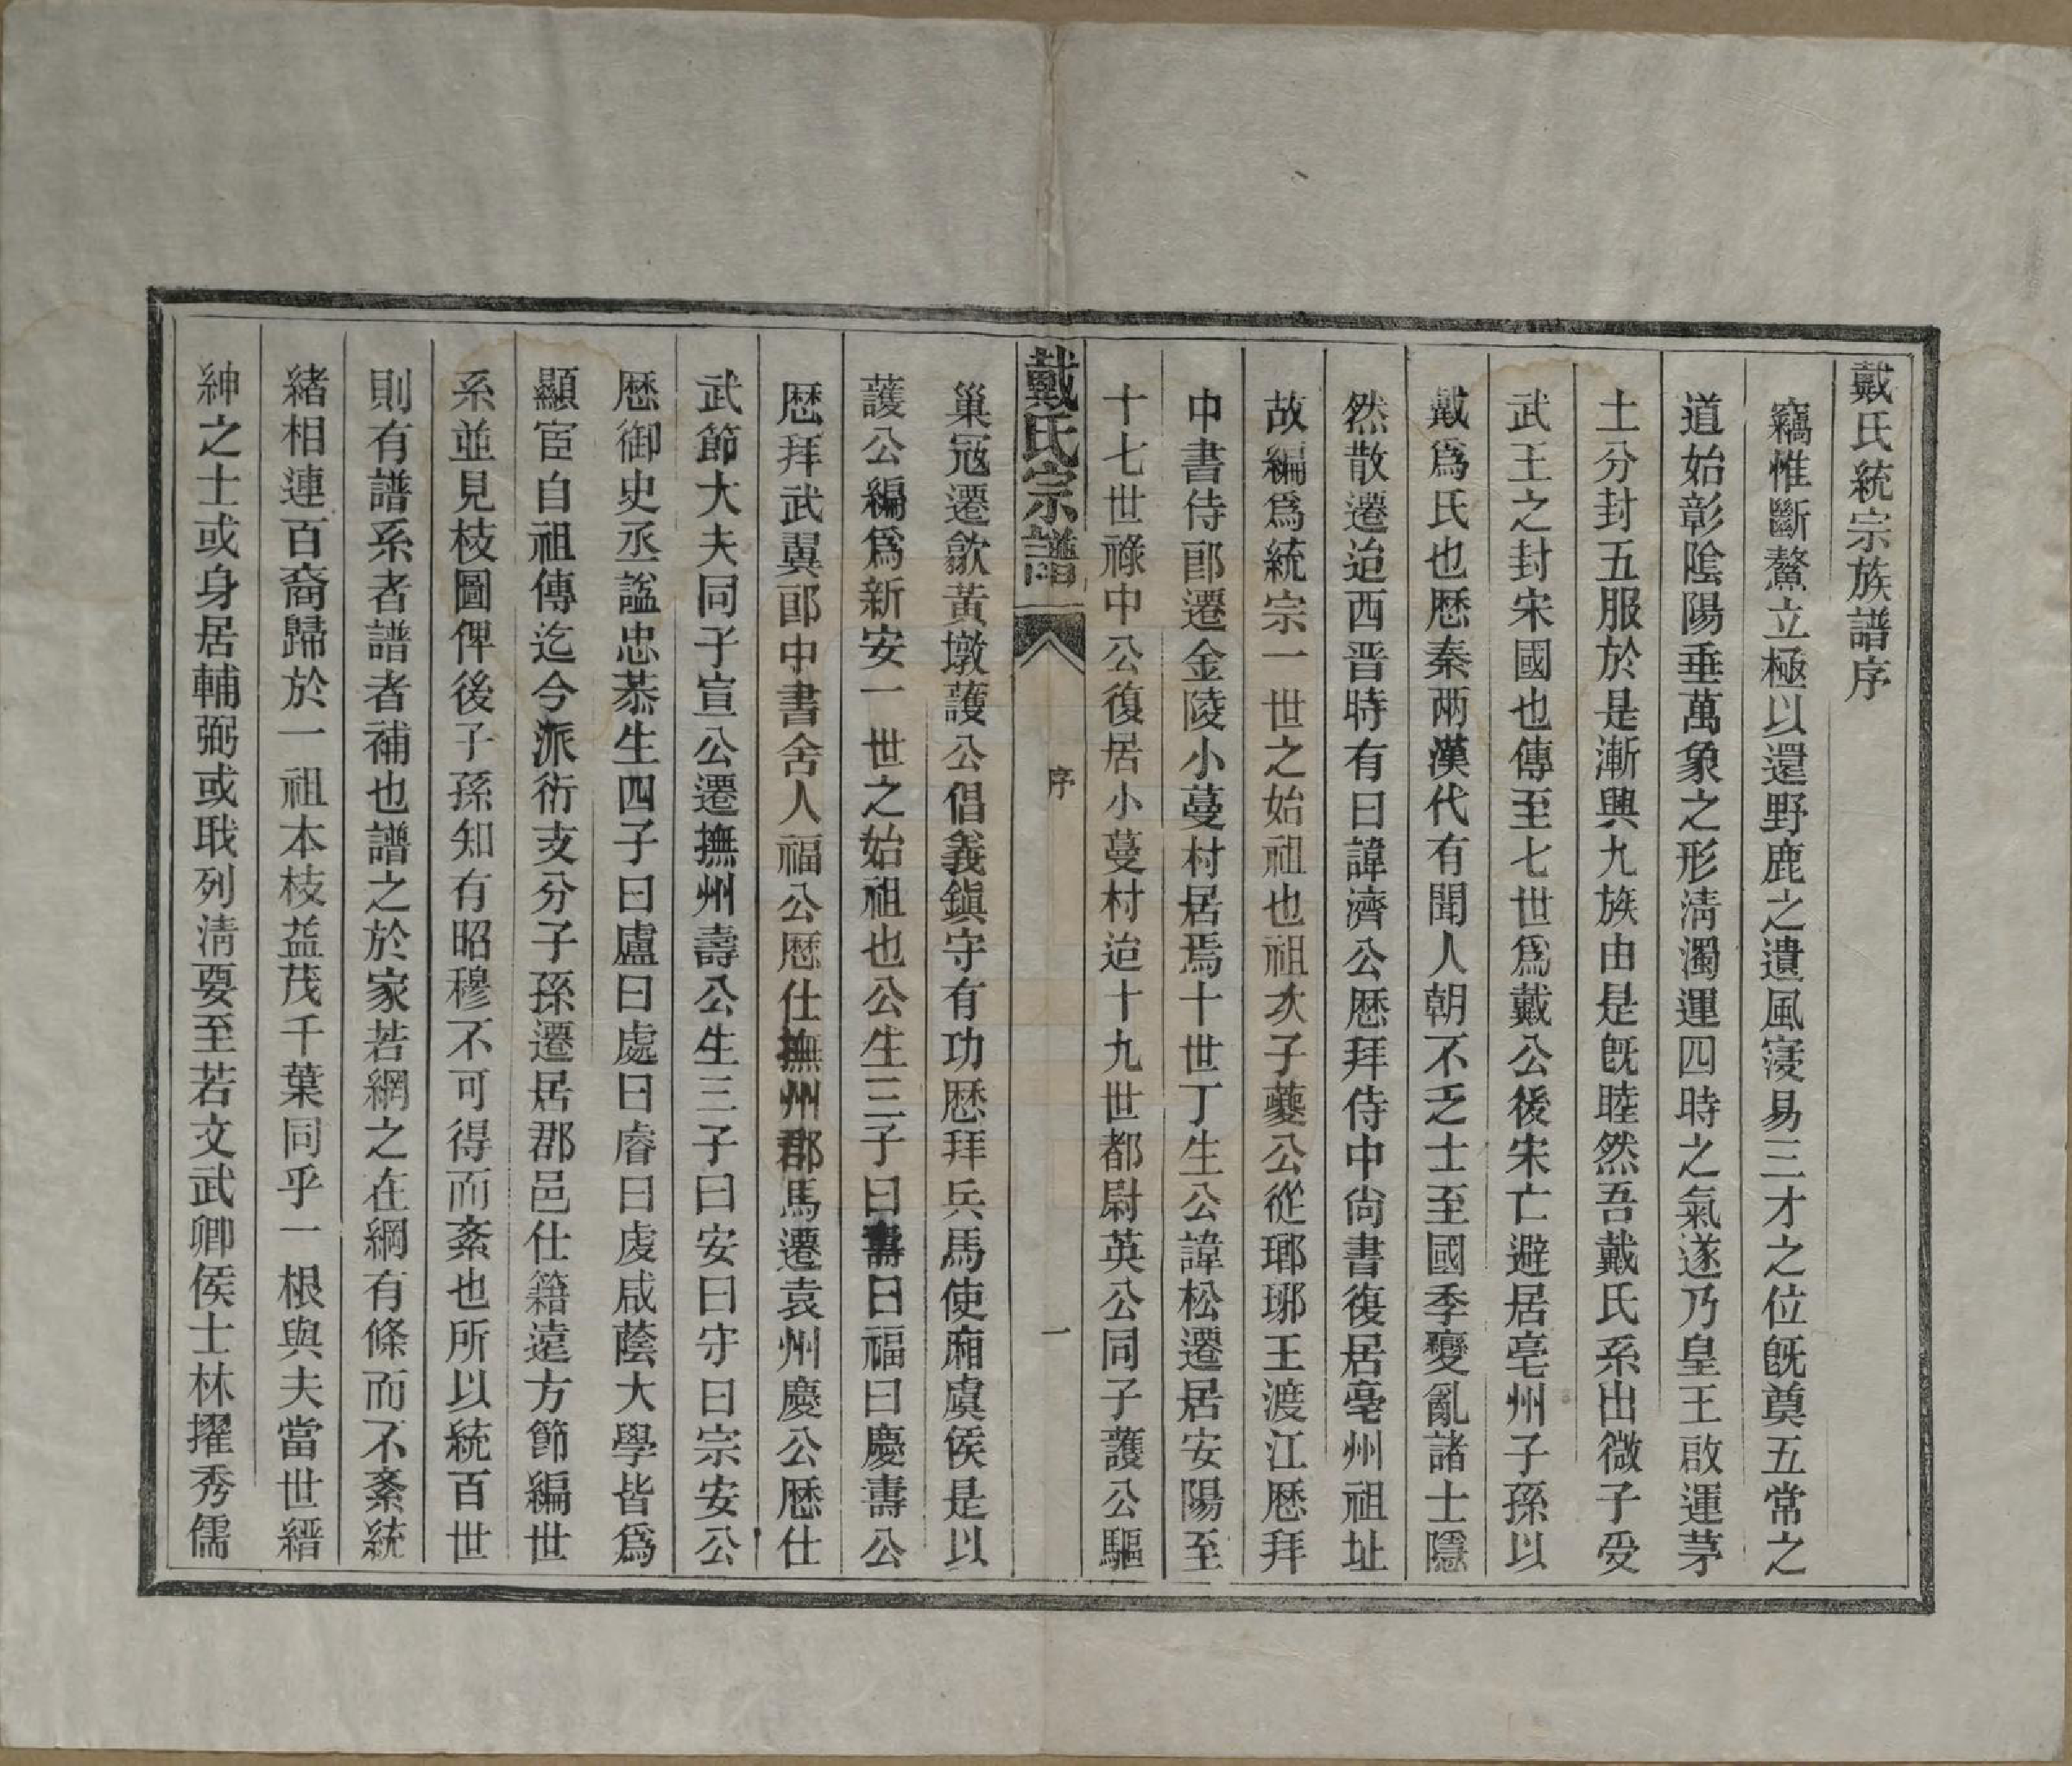 戴氏統宗族譜序
竊惟斷鰲立極以還野鹿之遺風寖易三才之位旣奠五常之
道始彰陰陽垂萬象之形淸濁運四時之氣遂乃皇王啟運茅
土分封五服於是漸興九族由是旣睦然吾戴氏系出微子受
武王之封宋國也傳至七世爲戴公後宋亡避居亳州子孫以
戴爲氏也歷秦兩漢代有聞人朝不乏士至國季變亂諸士隱
然散遷迨西晋時有曰諱濟公歷拜侍中尙書復居亳州祖址
故編爲統宗一世之始祖也祖次子夔公從瑯琊王渡江歷拜
中書侍郎遷金陵小蔓村居焉十世丁生公諱松遷居安陽至
十七世祿中公復居小蔓村迨十九世都尉英公同子護公驅
戴氏宗譜
序
一
巢冦遷歙黃墩護公倡義鎭守有功歷拜兵馬使廂虞侯是以
護公編爲新安一世之始祖也公生三子曰壽曰福曰慶壽公
歷拜武翼郎中書舍人福公歷仕撫州郡馬遷袁州慶公歷仕
武節大夫同子宣公遷撫州壽公生三子曰安曰守曰宗安公
歷御史丞謚忠恭生四子曰盧曰處曰睿曰虔咸蔭大學皆爲
顯宦自祖傳迄今派衍支分子孫遷居郡邑仕籍遠方節編世
系並見枝圖俾後子孫知有昭穆不可得而紊也所以統百世
則有譜系者譜者補也譜之於家若網之在綱有條而不紊統
緒相連百裔歸於一祖本枝益茂千葉同乎一根與夫當世縉
紳之士或身居輔弼或職列淸要至若文武卿侯士林擢秀儒